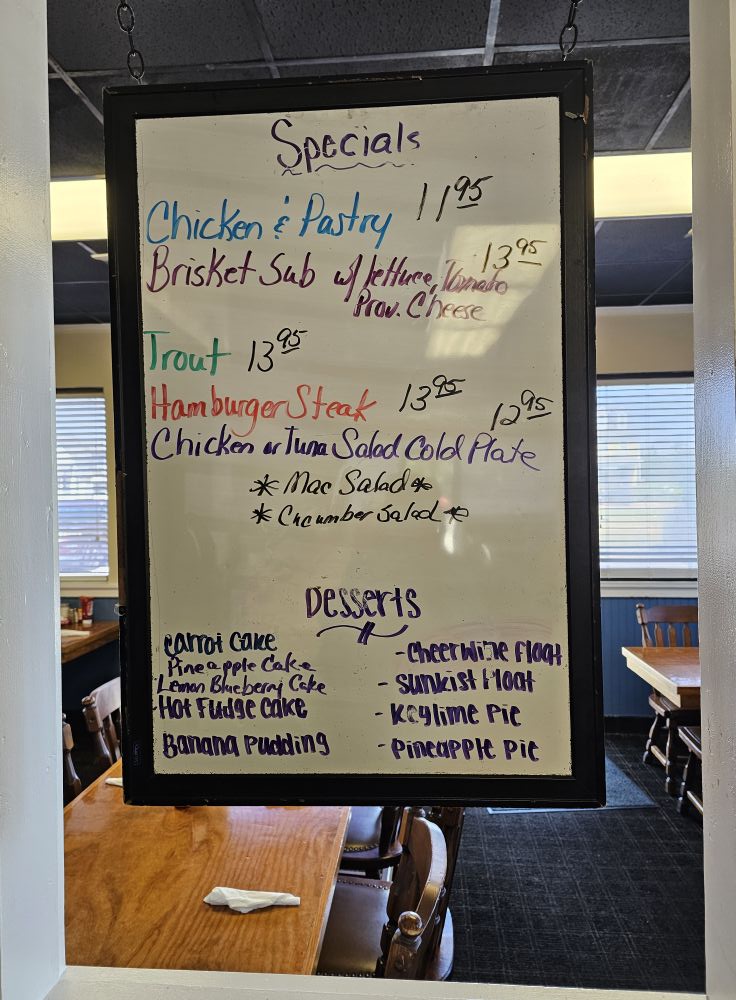 Specials
Chicken & Pastry 11 95
13 95
Brisket Sub w/ lettuce, Tomato
Prov. Cheese
Trout 13 95
Hamburger Steak 13 95
12 95
Chicken or Tuna Salad Cold Plate
* Mac Salad *
* Cucumber Salad *
Desserts
Carrot Cake
Pineapple Cake
Lemon Blueberry Cake
Hot Fudge Cake
Banana Pudding
- Cheerwine Float
- Sunkist Float
- Keylime Pie
- Pineapple Pie